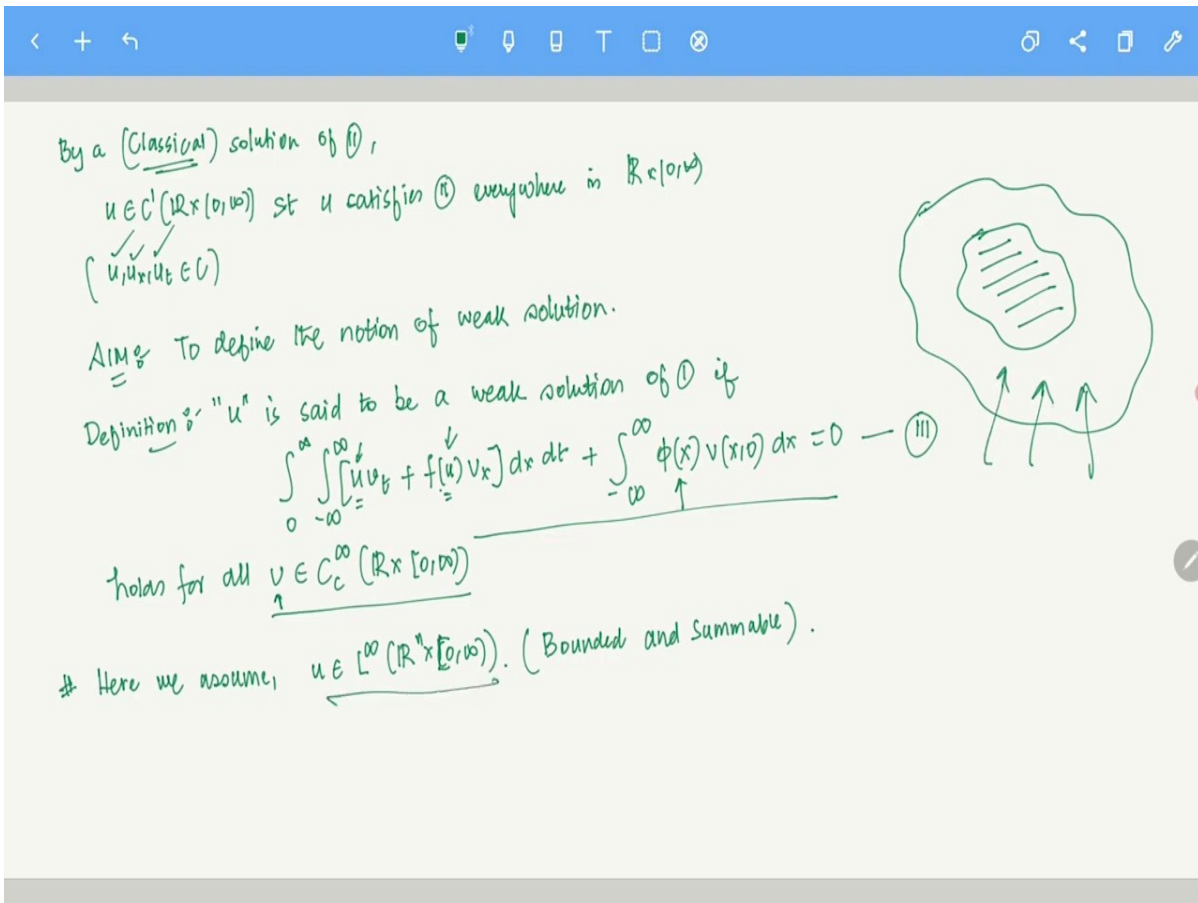 By a (Classical) solution of (II),
u ∈ C¹(ℝ×(0,∞)) st u satisfies (II) everywhere in ℝ×(0,∞)
(u, uₓ, uₜ ∈ C)
AIM: To define the notion of weak solution.
Definition:- "u" is said to be a weak solution of (I) if
∫₀^∞ ∫₋∞^∞ [u vₜ + f(u) vₓ] dx dt + ∫₋∞^∞ φ(x) v(x,0) dx = 0 — (III)
holds for all v ∈ C_c^∞ (ℝ×[0,∞))
# Here we assume, u ∈ L^∞ (ℝⁿ×[0,∞)). (Bounded and Summable).